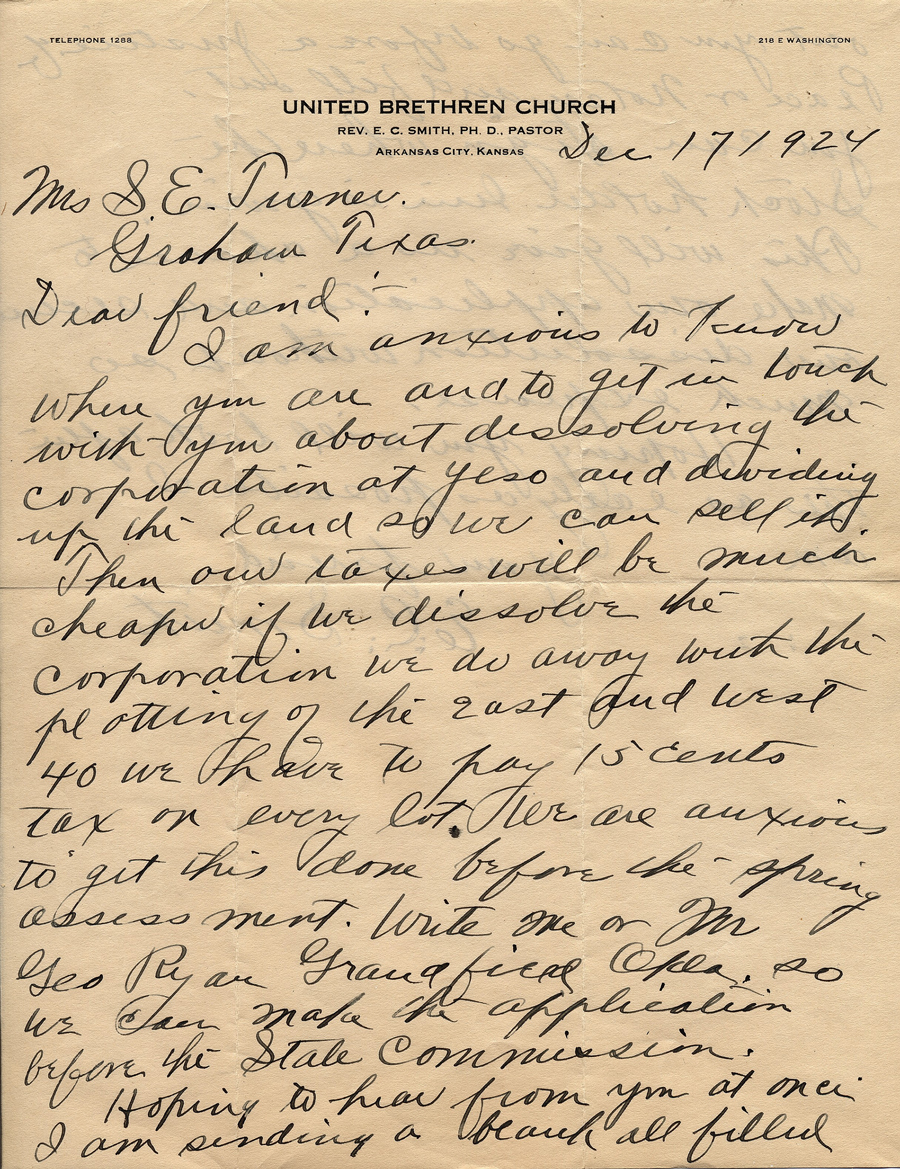 TELEPHONE 1288
218 E WASHINGTON
UNITED BRETHREN CHURCH
REV. E. C. SMITH, PH. D., PASTOR
ARKANSAS CITY, KANSAS
Dec 17/1924
Ms S. E. Turner.
Graham Texas.
Dear friend:-
I am anxious to know
where you are and to get in touch
with you about dessolving the
corporation at Yeso and dividing
up the land so we can sell it.
Then our taxes will be much
cheaper if we dissolve the
corporation we do away with the
plotting of the East and West
40 we have to pay 15 cents
tax on every lot. We are anxious
to get this done before the spring
assessment. Write me or Mr
Geo Ryan Grandfield Okla. so
we can make the application
before the State Commission.
Hoping to hear from you at once
I am sending a blank all filled